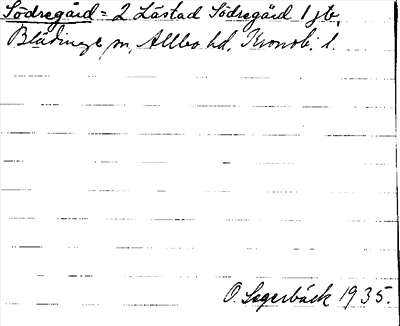 Södregård = 2 Låstad Södregård 1 jb,
Blädinge sn, Allbo hd, Kronob. l.
O. Segerbäck 1935.